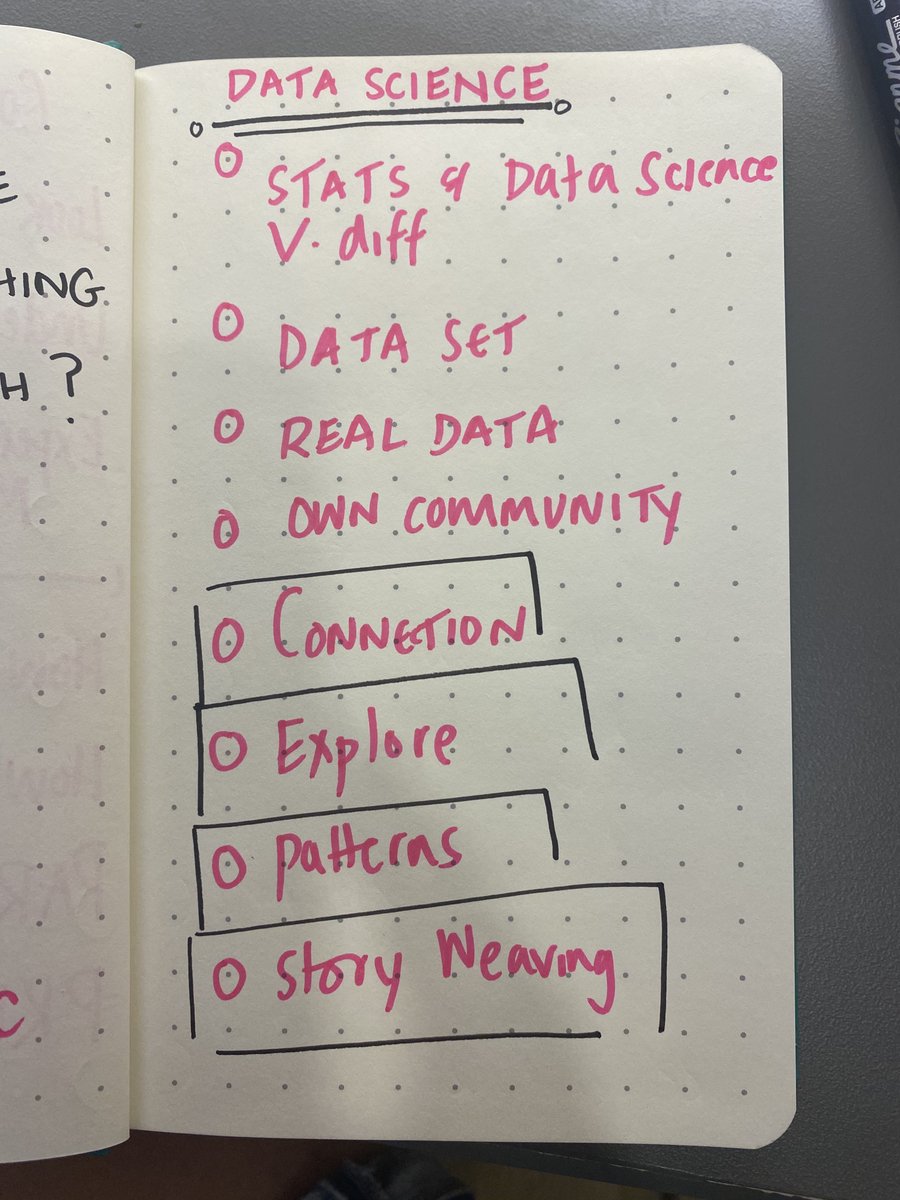 DATA SCIENCE
STATS & Data Science
V. diff
DATA SET
REAL DATA
OWN COMMUNITY
CONNETION
Explore
patterns
Story Weaving
E
HING
H ?
C